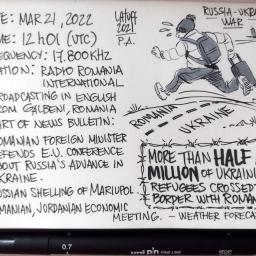 E: MAR 21, 2022
ME: 12h01 (UTC)
EQUENCY: 17.800KHZ
ATION: RADIO ROMANIA
INTERNATIONAL
ROADCASTING IN ENGLISH
OM GALBENI, ROMANIA
ART OF NEWS BULLETIN:
OMANIAN FOREIGN MINISTER
TENDS E.U. CONFERENCE
BOUT RUSSIA'S ADVANCE IN
KRAINE.
USSIAN SHELLING OF MARIUPOL
MANIAN, JORDANIAN ECONOMIC
MEETING. - WEATHER FORECAS
LATUFF
2021
P.A.
RUSSIA-UKRA
WAR
ROMANIA
UKRAINE
MORE THAN HALF
MILLION OF UKRAIN
REFUGEES CROSSED
BORDER WITH ROMAN
0.7
uni
PIN